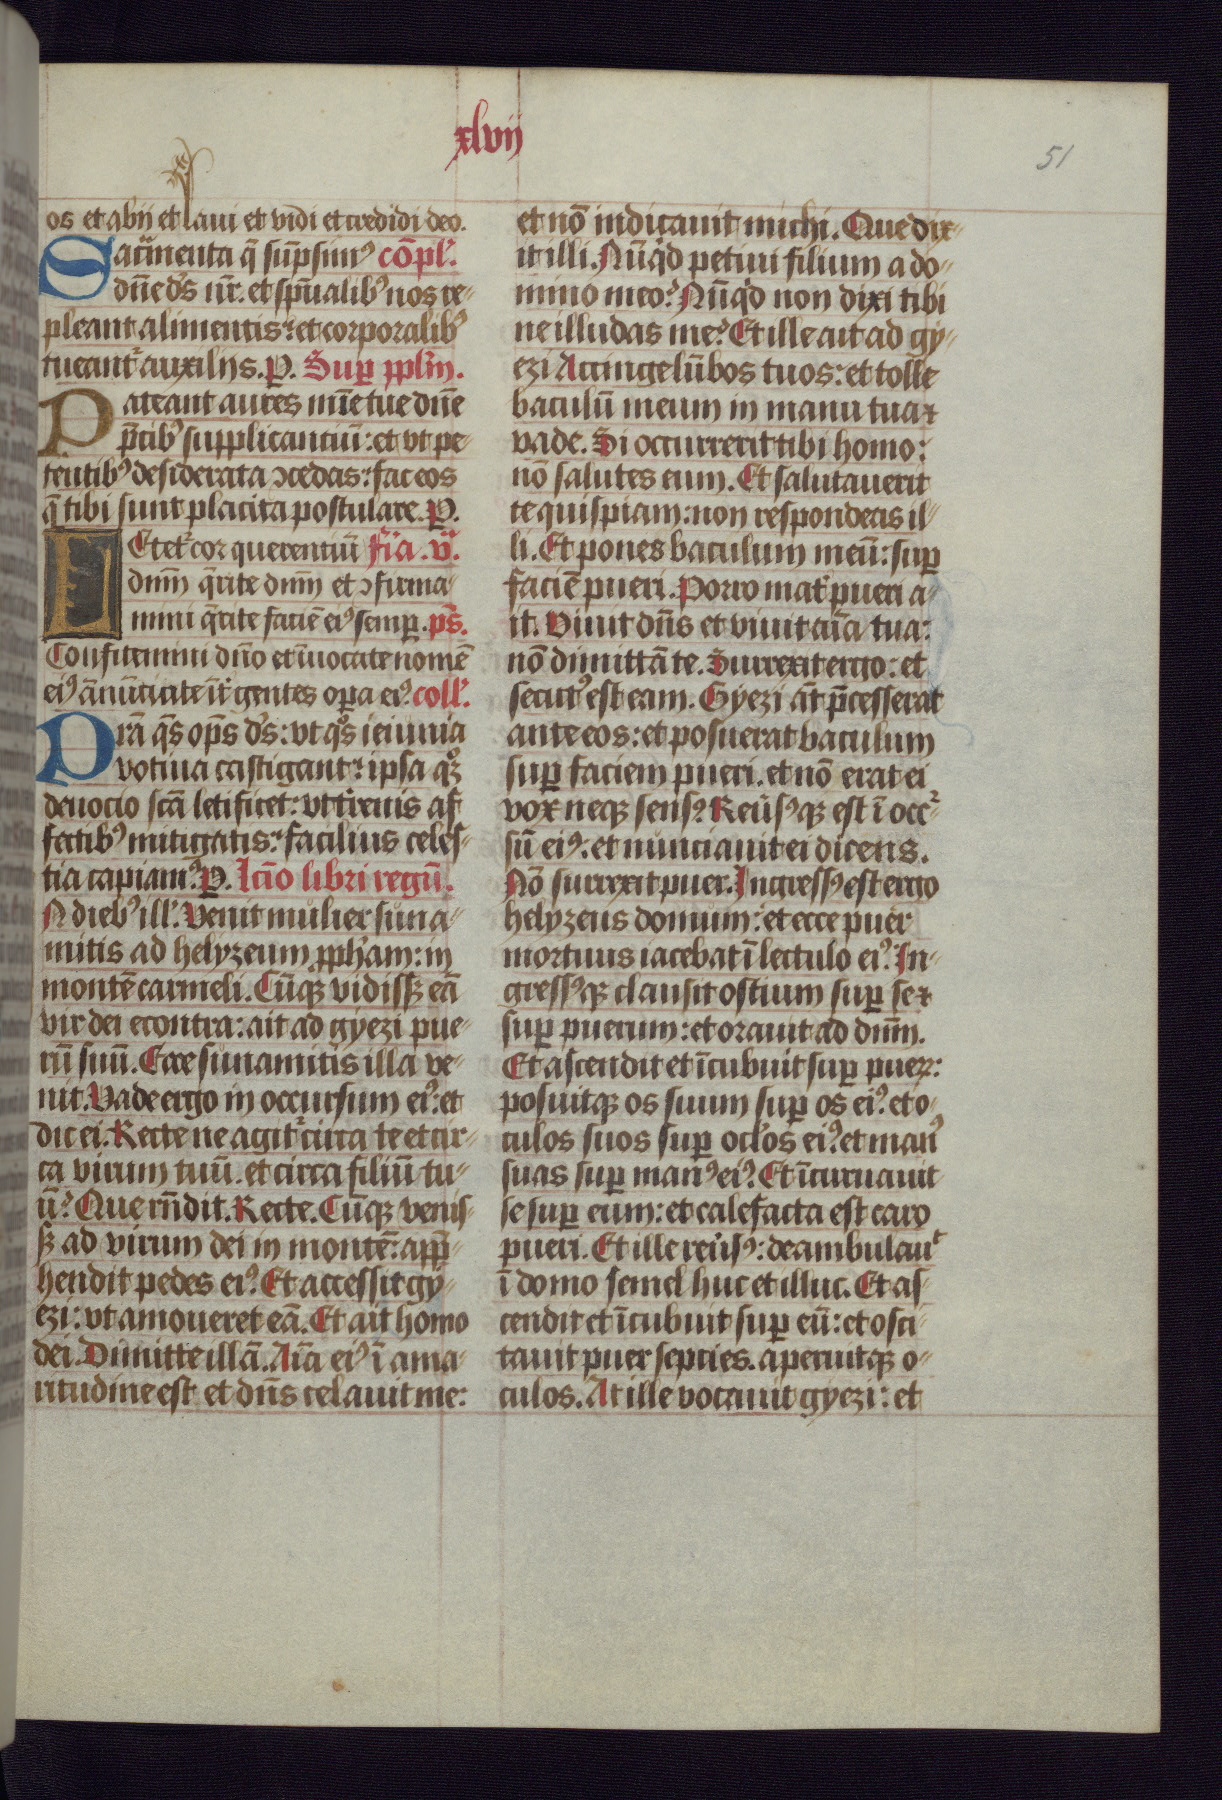 xlvij
51
os et abij et laui et vidi et credidi deo.
Sacr̄menta q̄ sūpsimꝰ cōpl'.
dn̄e ds̄ nr̄. et sp̄ualibꝰ nos re⸗
pleant alimentis: et corporalibꝰ
tueant᷑ auxilijs. P. Sup̱ ppl'm.
Pateant aures mīe tue dn̄e
p̄cibꝰ supplicantiū: et vt pe⸗
tentibꝰ desiderata ꝯcedas: fac eos
q̄ tibi sunt placita postulare. P.
Letet᷑ cor querentiū fīa. v̄.
dnm̄ q̄rite dnm̄ et ꝯfirma⸗
mini q̄rite faciē eiꝰ semp̱. ps̄.
Confitemini dn̄o et īuocate nomē
eiꝰ ānūtiate īt᷑ gentes oꝑa eiꝰ. coll'.
Prā qs̄ ops̄ ds̄: vt qͦs ieiunia
votiua castigant: ipsa qͦꝫ
deuocio scā letificet: vt t᷑renis af⸗
fectibꝰ mitigatis: facilius celes⸗
tia capiamꝰ. P. Lcīo libri regū.
N diebꝰ ill'. Venit mulier suna⸗
mitis ad helyzeum ꝓph'am: in
montē carmeli. Cūqꝫ vidissꝫ eā
vir dei econtra: ait ad gyezi pue⸗
rū suū. Ecce sunamitis illa ve⸗
nit. Vade ergo in occursum eiꝰ: et
dic ei. Recte ne agit᷑ circa te et cir⸗
ca virum tuū. et circa filiū tu⸗
ū? Que rn̄dit. Recte. Cūqꝫ venis⸗
sꝫ ad virum dei in montē: app̄⸗
hendit pedes eiꝰ. Et accessit gy⸗
ezi: vt amoueret eā. Et ait homo
dei. Dimitte illā. Aīa eiꝰ ī ama⸗
ritudine est et dn̄s celauit me:
et nō indicauit michi. Que dix⸗
it illi. Nūqͥd petiui filium a do⸗
mino meo? Nūqͥd non dixi tibi
ne illudas me? Et ille ait ad gy⸗
ezi Accinge lūbos tuos: et tolle
baculū meum in manu tua ⁊
vade. Si occurrerit tibi homo:
nō salutes eum. Et salutauerit
te quispiam: non respondeas il⸗
li. Et pones baculum meū: sup̱
faciē pueri. Porro mat᷑ pueri a⸗
it. Viuit dn̄s et viuit aīa tua:
nō dimittā te. Surrexit ergo: et
secutꝰ est eam. Gyezi āt p̄cesserat
ante eos: et posuerat baculum
sup̱ faciem pueri. et nō erat ei
vox neqꝫ sensꝰ. Reūsꝰqꝫ est ī occ᷑⸗
sū eiꝰ. et nunciauit ei dicens.
Nō surrexit puer. Ingressꝰ est ergo
helyzeus domum: et ecce puer
mortuus iacebat ī lectulo eiꝰ. In⸗
gressꝰqꝫ clausit ostium sup̱ se ⁊
sup̱ puerum: et orauit ad dnm̄.
Et ascendit et īcubuit sup̱ pueꝝ:
posuitqꝫ os suum sup̱ os eiꝰ. et o⸗
culos suos sup̱ ocl'os eiꝰ. et manꝰ
suas sup̱ manꝰ eiꝰ. Et īcuruauit
se sup̱ eum: et calefacta est caro
pueri. Et ille reūsꝰ: deambulauᵗ
ī domo semel huc et illuc. Et as⸗
cendit et īcubuit sup̱ eū: et osci⸗
tauit puer septies. aperuitqꝫ o⸗
culos. At ille vocauit gyezi: et